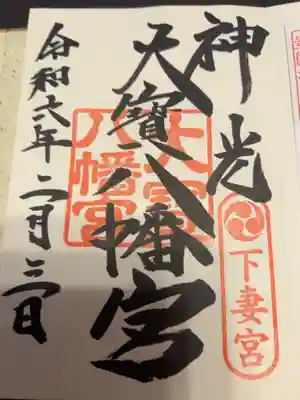 神光
下妻宮
大寶八幡宮
大寶
八幡宮
令和六年二月三日